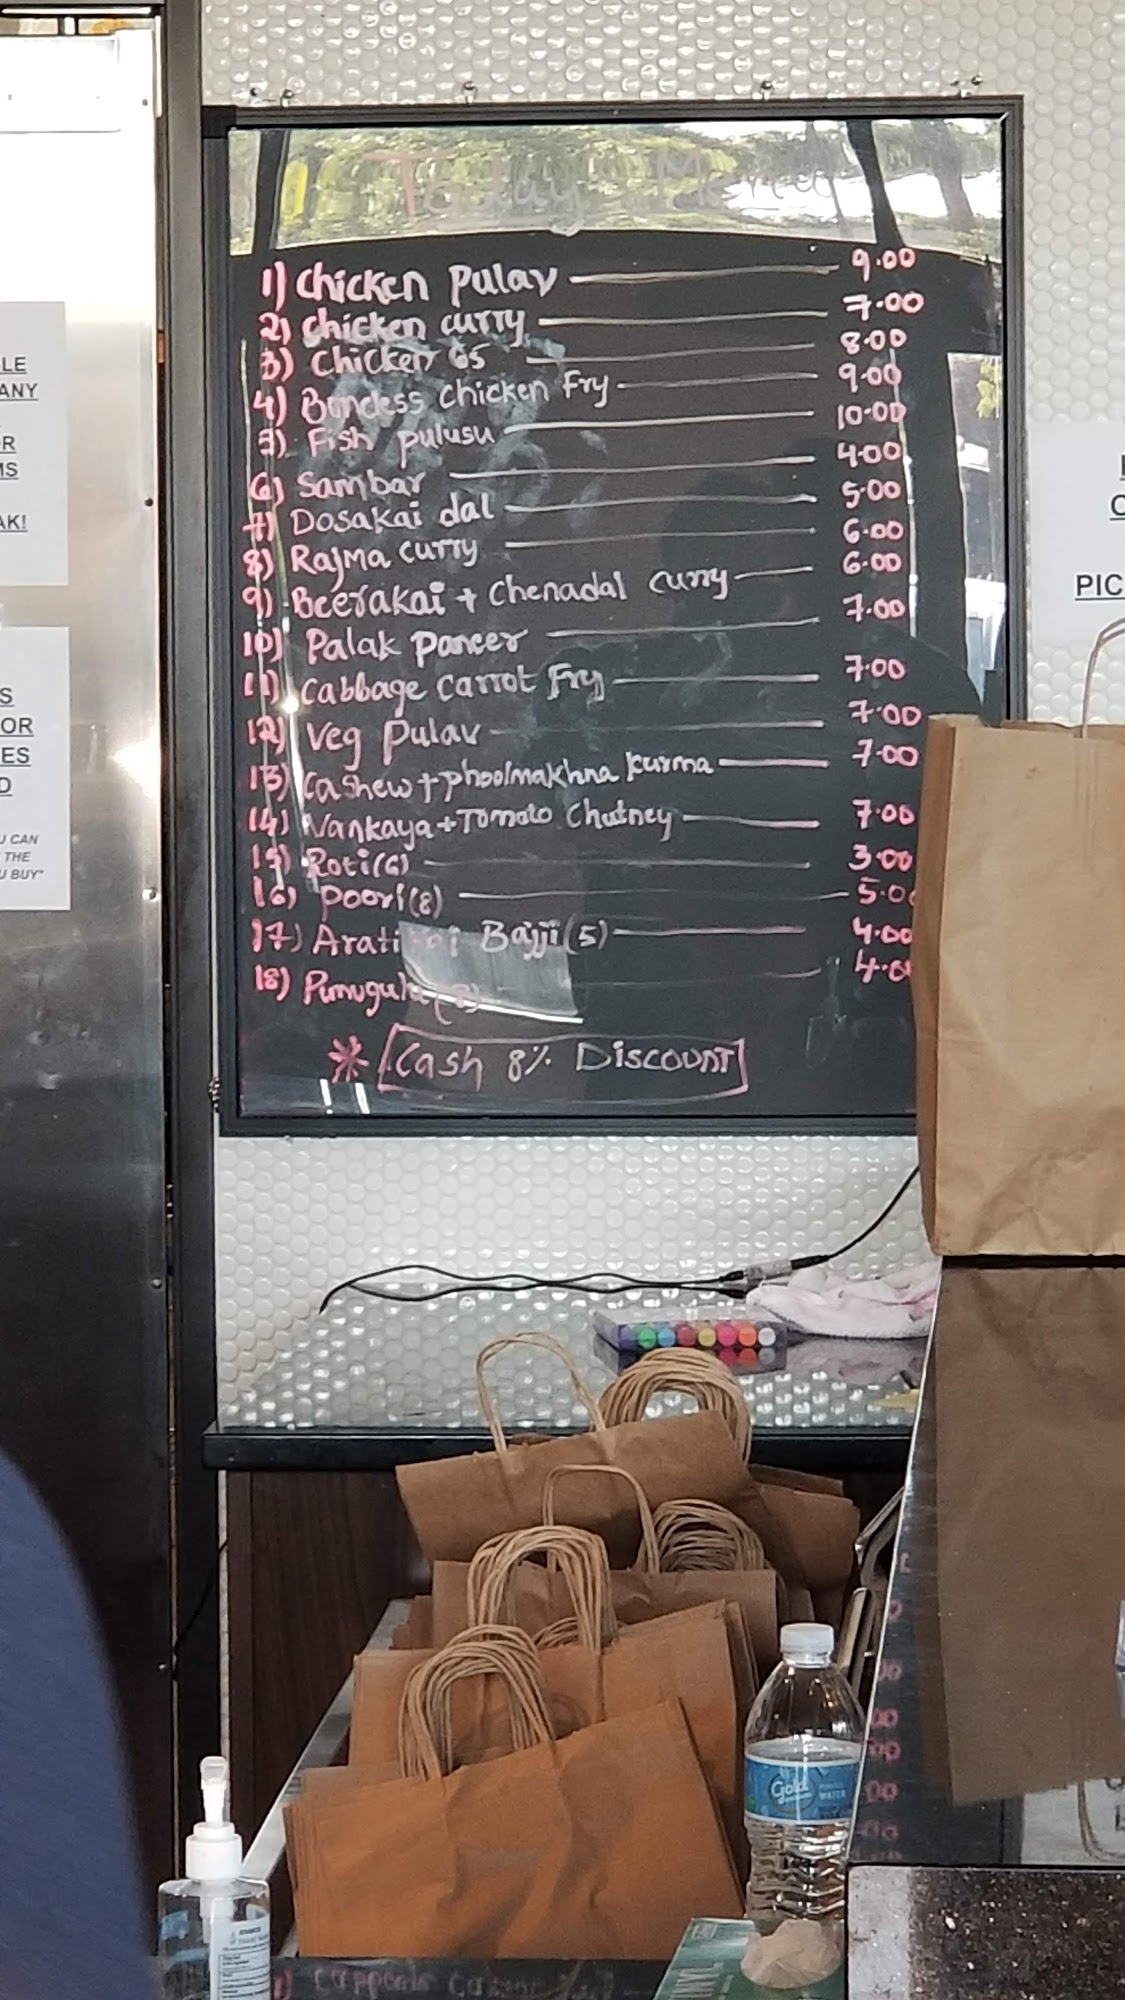 Today's Menu
1) Chicken Pulav 9.00
2) Chicken curry 7.00
3) Chicken 65 8.00
4) Boneless Chicken Fry 9.00
5) Fish pulusu 10.00
6) Sambar 4.00
7) Dosakai dal 5.00
8) Rajma curry 6.00
9) Beerakai + Chenadal curry 6.00
10) Palak Paneer 7.00
11) Cabbage Carrot Fry 7.00
12) Veg Pulav 7.00
13) Cashew + phoolmakhna kurma 7.00
14) Vankaya + Tomato Chutney 7.00
15) Roti (6) 3.00
16) Poori (8) 5.0
17) Bajji (5) 4.00
18) 4.0
* Cash 8% DISCOUNT
LE
ANY
R
MS
AK!
S
OR
ES
D
U CAN
THE
U BUY"
PIC
Gold
WATER